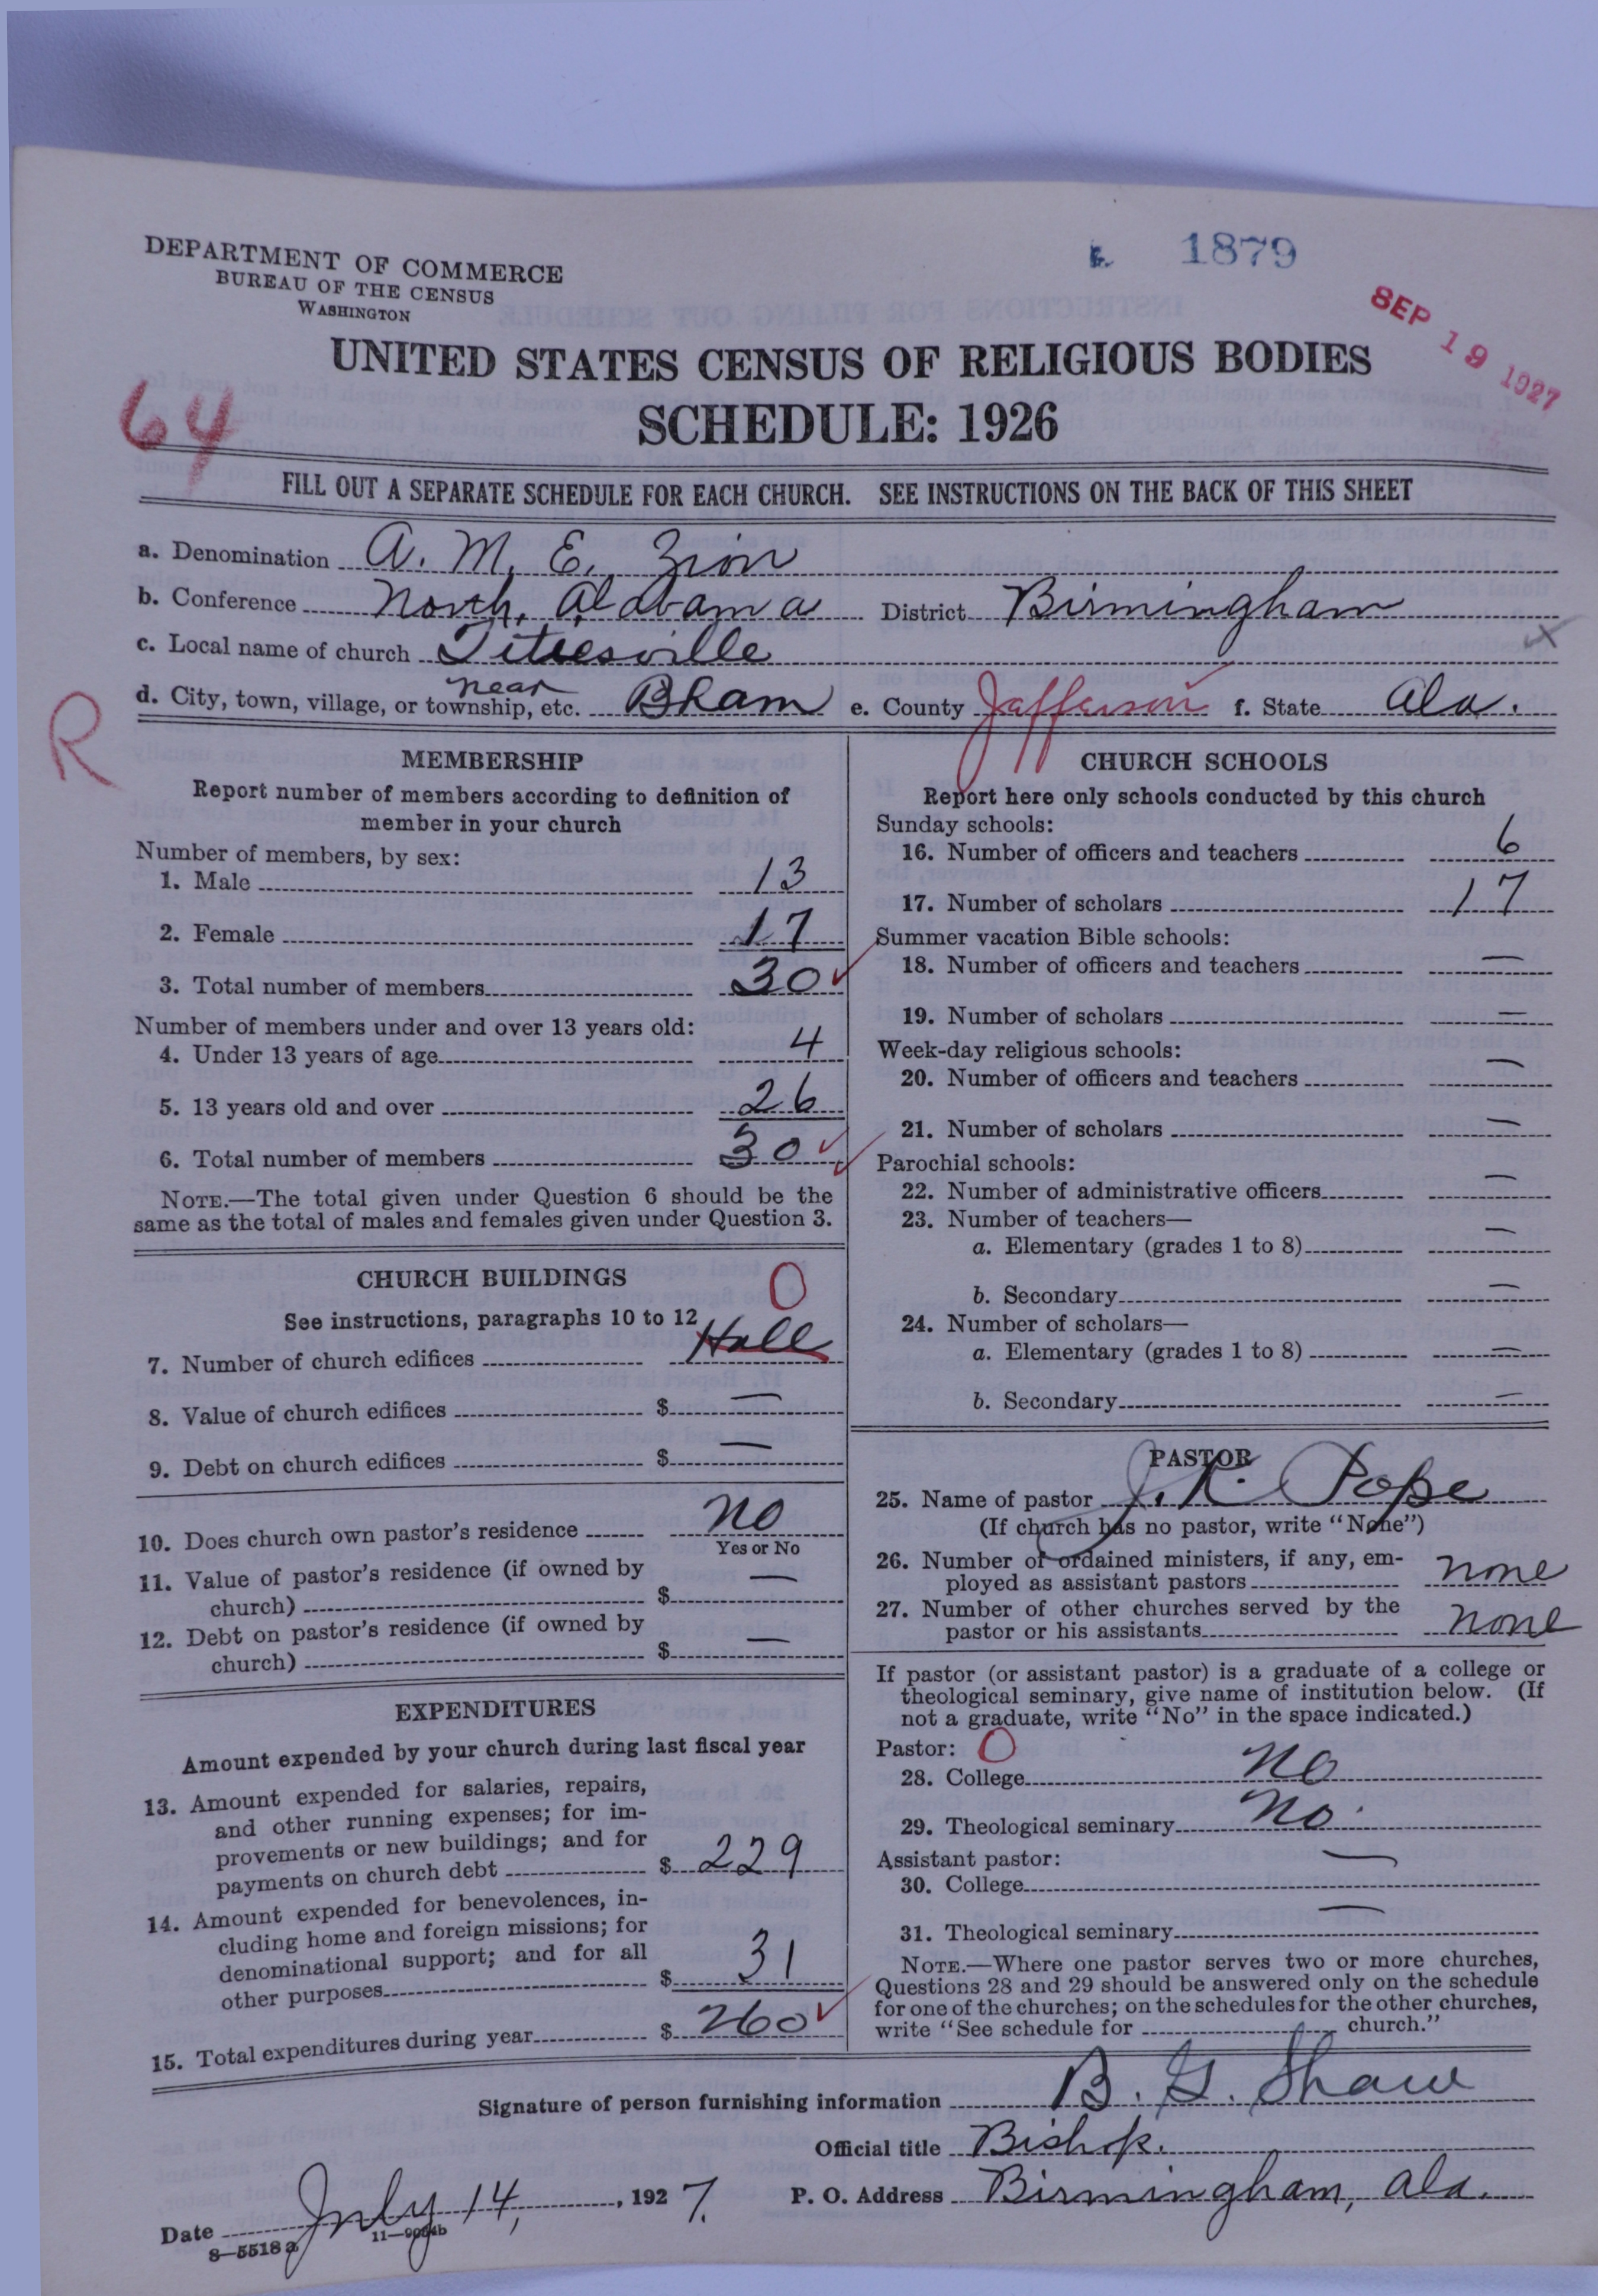 DEPARTMENT OF COMMERCE
BUREAU OF THE CENSUS
WASHINGTON
1879
SEP 19 1927
UNITED STATES CENSUS OF RELIGIOUS BODIES
SCHEDULE: 1926
64
FILL OUT A SEPARATE SCHEDULE FOR EACH CHURCH. SEE INSTRUCTIONS ON THE BACK OF THIS SHEET
a. Denomination A. M. E. Zion
b. Conference North Alabama District Birmingham
c. Local name of church
d. City, town, village, or township, etc. near Bham e. County Jafferson f. State Ala.
R
MEMBERSHIP
Report number of members according to definition of
member in your church
Number of members, by sex:
1. Male 13
2. Female 17
3. Total number of members 30
Number of members under and over 13 years old:
4. Under 13 years of age 4
5. 13 years old and over 26
6. Total number of members 30
NOTE.—The total given under Question 6 should be the
same as the total of males and females given under Question 3.
CHURCH BUILDINGS
See instructions, paragraphs 10 to 12
0
7. Number of church edifices Hall
8. Value of church edifices $ —
9. Debt on church edifices $ —
10. Does church own pastor's residence No
Yes or No
11. Value of pastor's residence (if owned by
church) $ —
12. Debt on pastor's residence (if owned by
church) $ —
EXPENDITURES
Amount expended by your church during last fiscal year
13. Amount expended for salaries, repairs,
and other running expenses; for im-
provements or new buildings; and for
payments on church debt $ 229
14. Amount expended for benevolences, in-
cluding home and foreign missions; for
denominational support; and for all
other purposes $ 31
15. Total expenditures during year $ 260
CHURCH SCHOOLS
Report here only schools conducted by this church
Sunday schools:
16. Number of officers and teachers 6
17. Number of scholars 17
Summer vacation Bible schools:
18. Number of officers and teachers —
19. Number of scholars —
Week-day religious schools:
20. Number of officers and teachers —
21. Number of scholars —
Parochial schools:
22. Number of administrative officers —
23. Number of teachers—
a. Elementary (grades 1 to 8) —
b. Secondary —
24. Number of scholars—
a. Elementary (grades 1 to 8) —
b. Secondary —
PASTOR
25. Name of pastor J. R. Pope
(If church has no pastor, write "None")
26. Number of ordained ministers, if any, em-
ployed as assistant pastors none
27. Number of other churches served by the
pastor or his assistants none
If pastor (or assistant pastor) is a graduate of a college or
theological seminary, give name of institution below. (If
not a graduate, write "No" in the space indicated.)
Pastor: 0
28. College No
29. Theological seminary No.
Assistant pastor: —
30. College
31. Theological seminary —
NOTE.—Where one pastor serves two or more churches,
Questions 28 and 29 should be answered only on the schedule
for one of the churches; on the schedules for the other churches,
write "See schedule for church."
Signature of person furnishing information B. G. Shaw
Official title Bishop.
Date July 14, 1927. P. O. Address Birmingham, Ala.
8—5518a 11—9064b